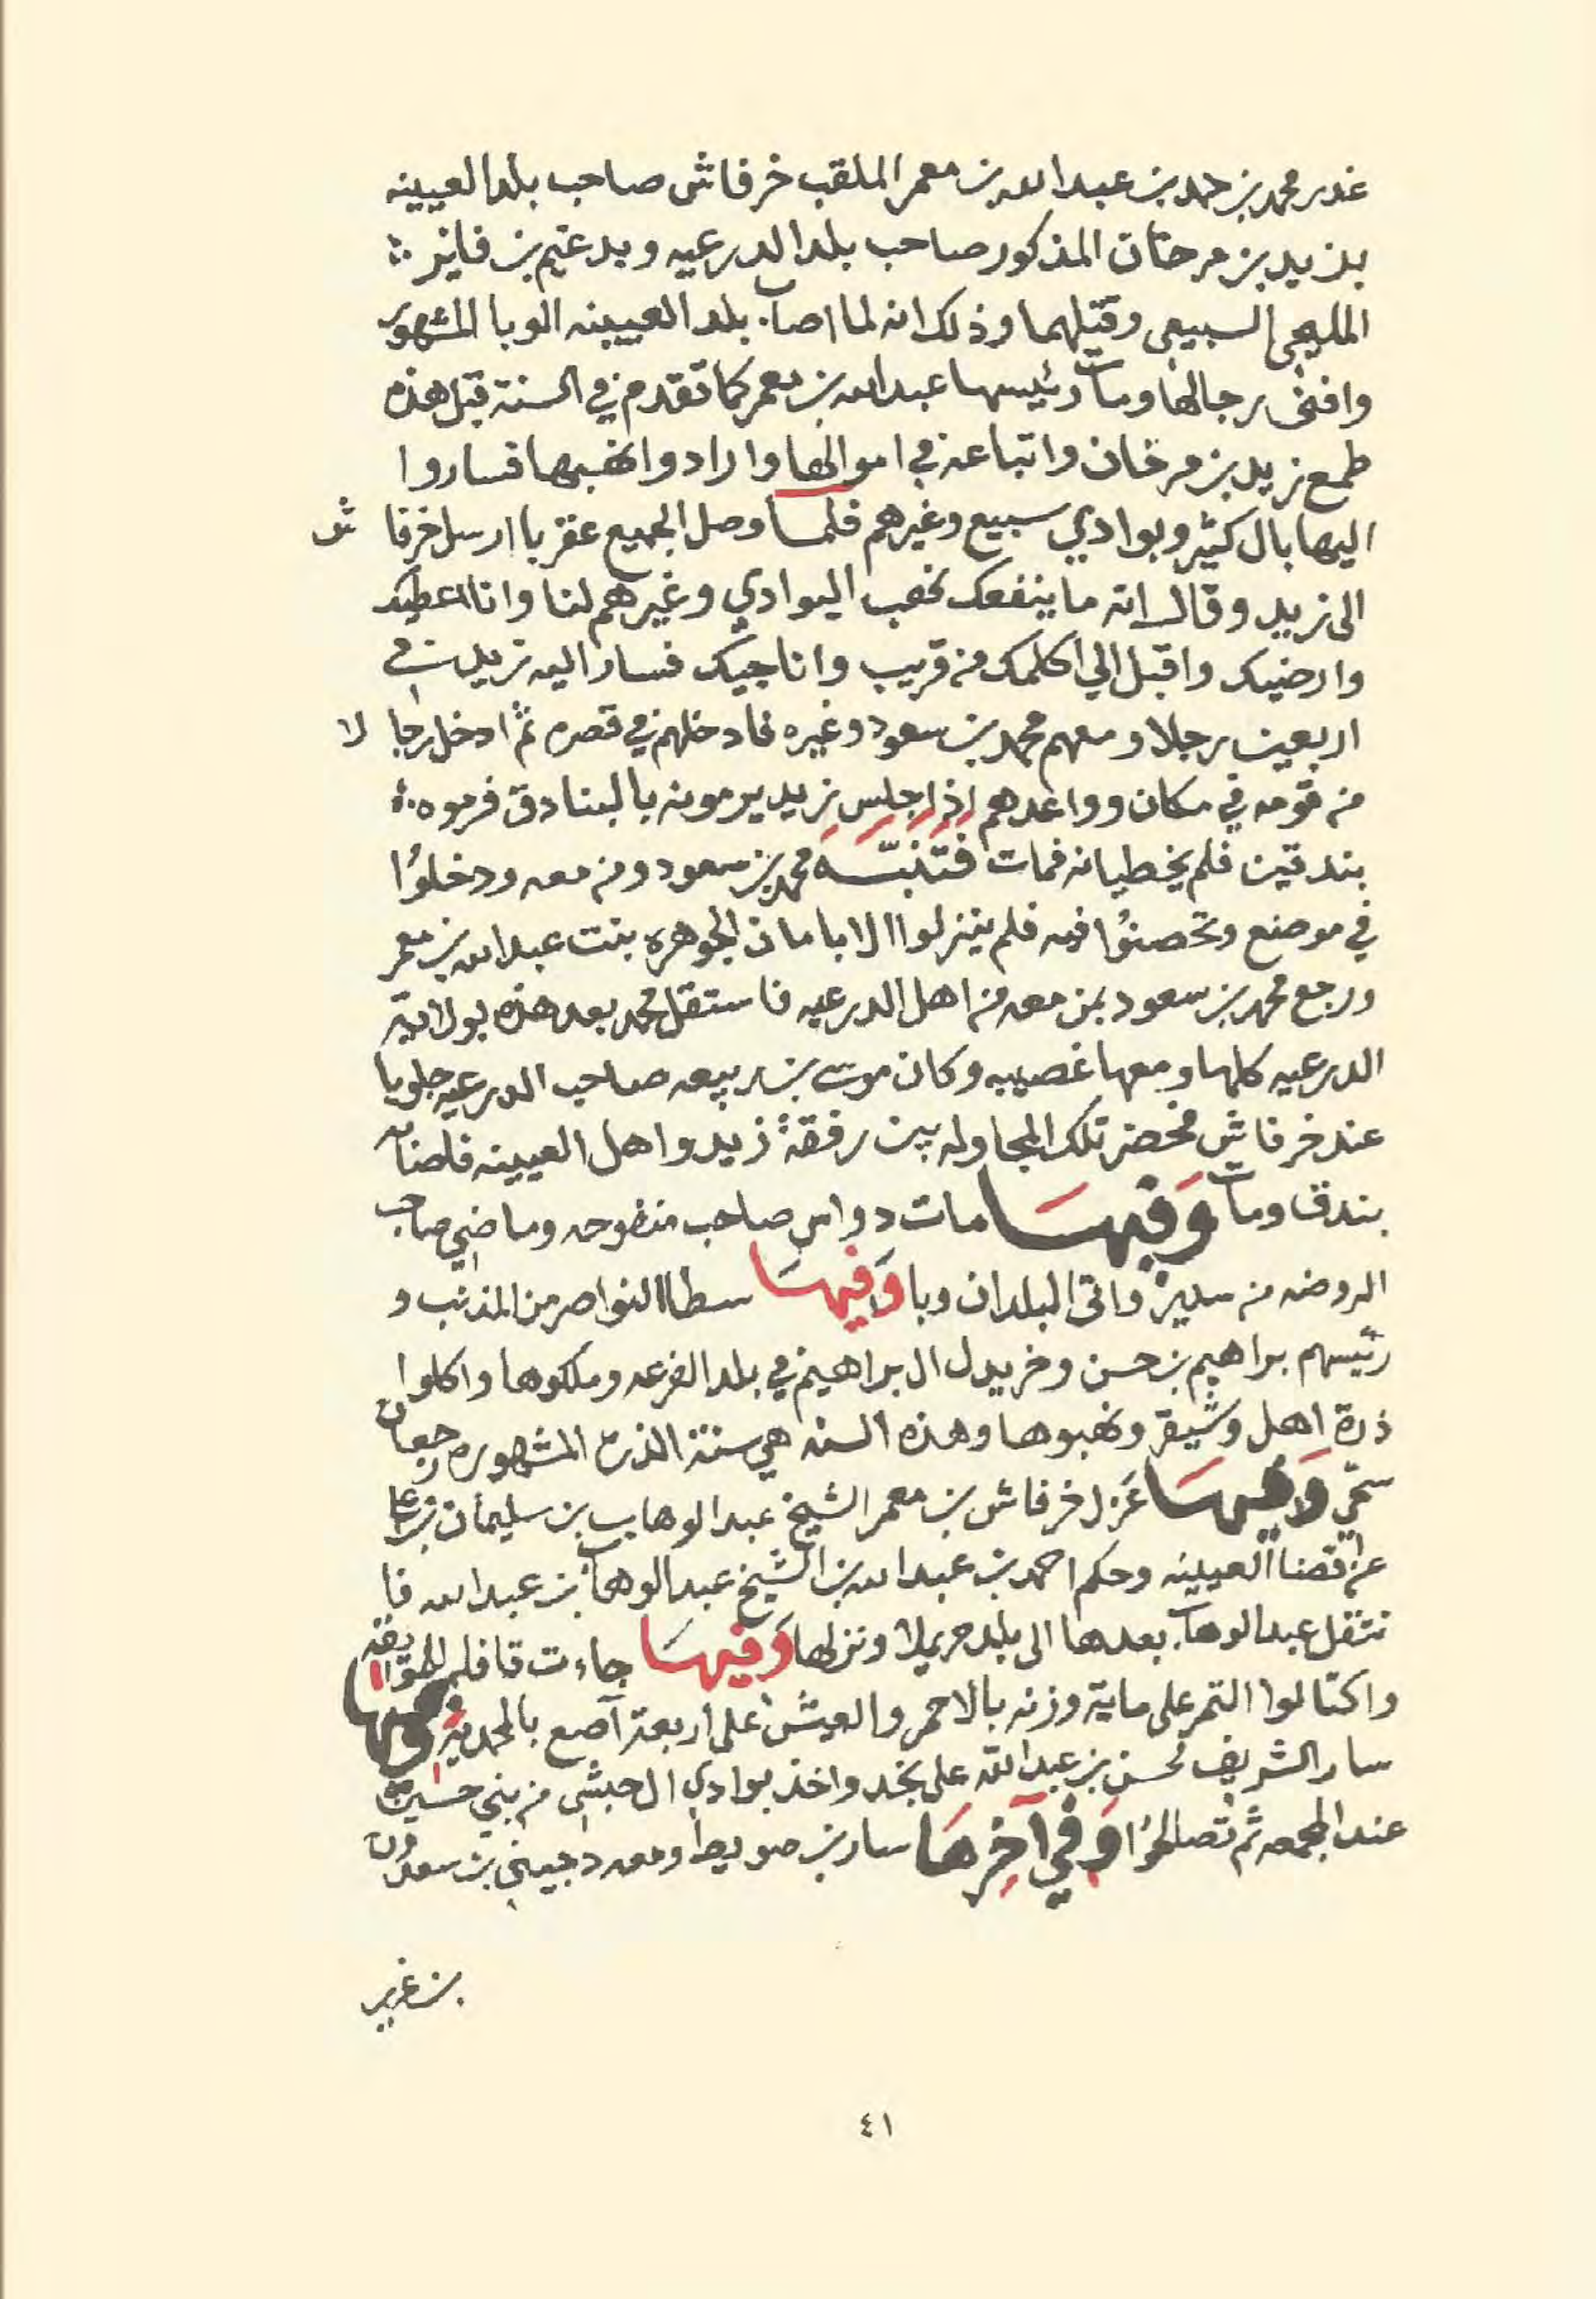 غدر محمد بن حمد بن عبدالله بن معمر الملقب خرفاش صاحب بلد العيينه
بزيد بن مرخان المذكور صاحب بلد الدرعيه وبدغيم بن فايز
المليحي السبيعي وقتلهما وذلك انه لما اصاب بلد العيينه الوبا المشهور
وافنى رجالها ومات رئيسها عبدالله بن معمر كما تقدم في السنة قبل هذه
طمع زيد بن مرخان واتباعه في اموالها وارادوا نهبها فساروا
اليها بال كثير وبوادي سبيع وغيرهم فلما وصل الجميع عقربا ارسل خرفاش
الى زيد وقال انه ما ينفعك نهب البوادي وغيرهم لنا وانا اعطيك
وارضيك واقبل الي اكلمك من قريب وانا جيك فسار اليه زيد في
اربعين رجلا ومعهم محمد بن سعود وغيره فادخلهم في قصره ثم ادخل رجالا
من قومه في مكان وواعدهم اذا جلس زيد يرمونه بالبنادق فرموه
بندقين فلم يخطيانه فمات فتنبه محمد بن سعود ومن معه ودخلوا
في موضع وتحصنوا فيه فلم ينزلوا الا بامان الجوهره بنت عبدالله بن معمر
ورجع محمد بن سعود بمن معه من اهل الدرعيه فاستقل محمد بعد هذه بولاية
الدرعيه كلها ومعها غصيبه وكان موسى بن ربيعه صاحب الدرعيه جلويا
عند خرفاش فحضر تلك المجاوله بين رفقة زيد واهل العيينه فاصابه
بندق ومات وفيها مات دواس صاحب منفوحه وماضي صاحب
الروضه من سدير واتى البلدان وبا وفيها سطا النواصر من المذنب و
رئيسهم براهيم بن حسن وخريدل ال براهيم في بلد الفرعه وملكوها واكلوا
ذرة اهل وشيقر ونهبوها وهذه السنه هي سنة الذرة المشهوره رجعان
سحي وفيها عزل خرفاش بن معمر الشيخ عبدالوهاب بن سليمان بن علي
عن قضا العيينه وحكم احمد بن عبدالله بن الشيخ عبدالوهاب بن عبدالله فا
نتقل عبدالوهاب بعدها الى بلد حريملا ونزلها وفيها جاءت قافله
واكتالوا التمر على ماية وزنه بالاحمر والعيش على اربعة آصع بالمحمديه وفيها
سار الشريف محسن بن عبدالله على نجد واخذ بوادي ال حبشي من بني حسين
عند المجمعه ثم تصالحوا وفي آخرها سار بن صويط ومعه دجيني بن سعدون
بن غرير
٤١